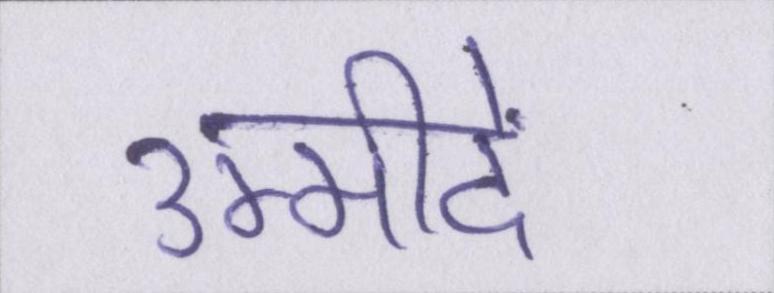 उम्मीदें